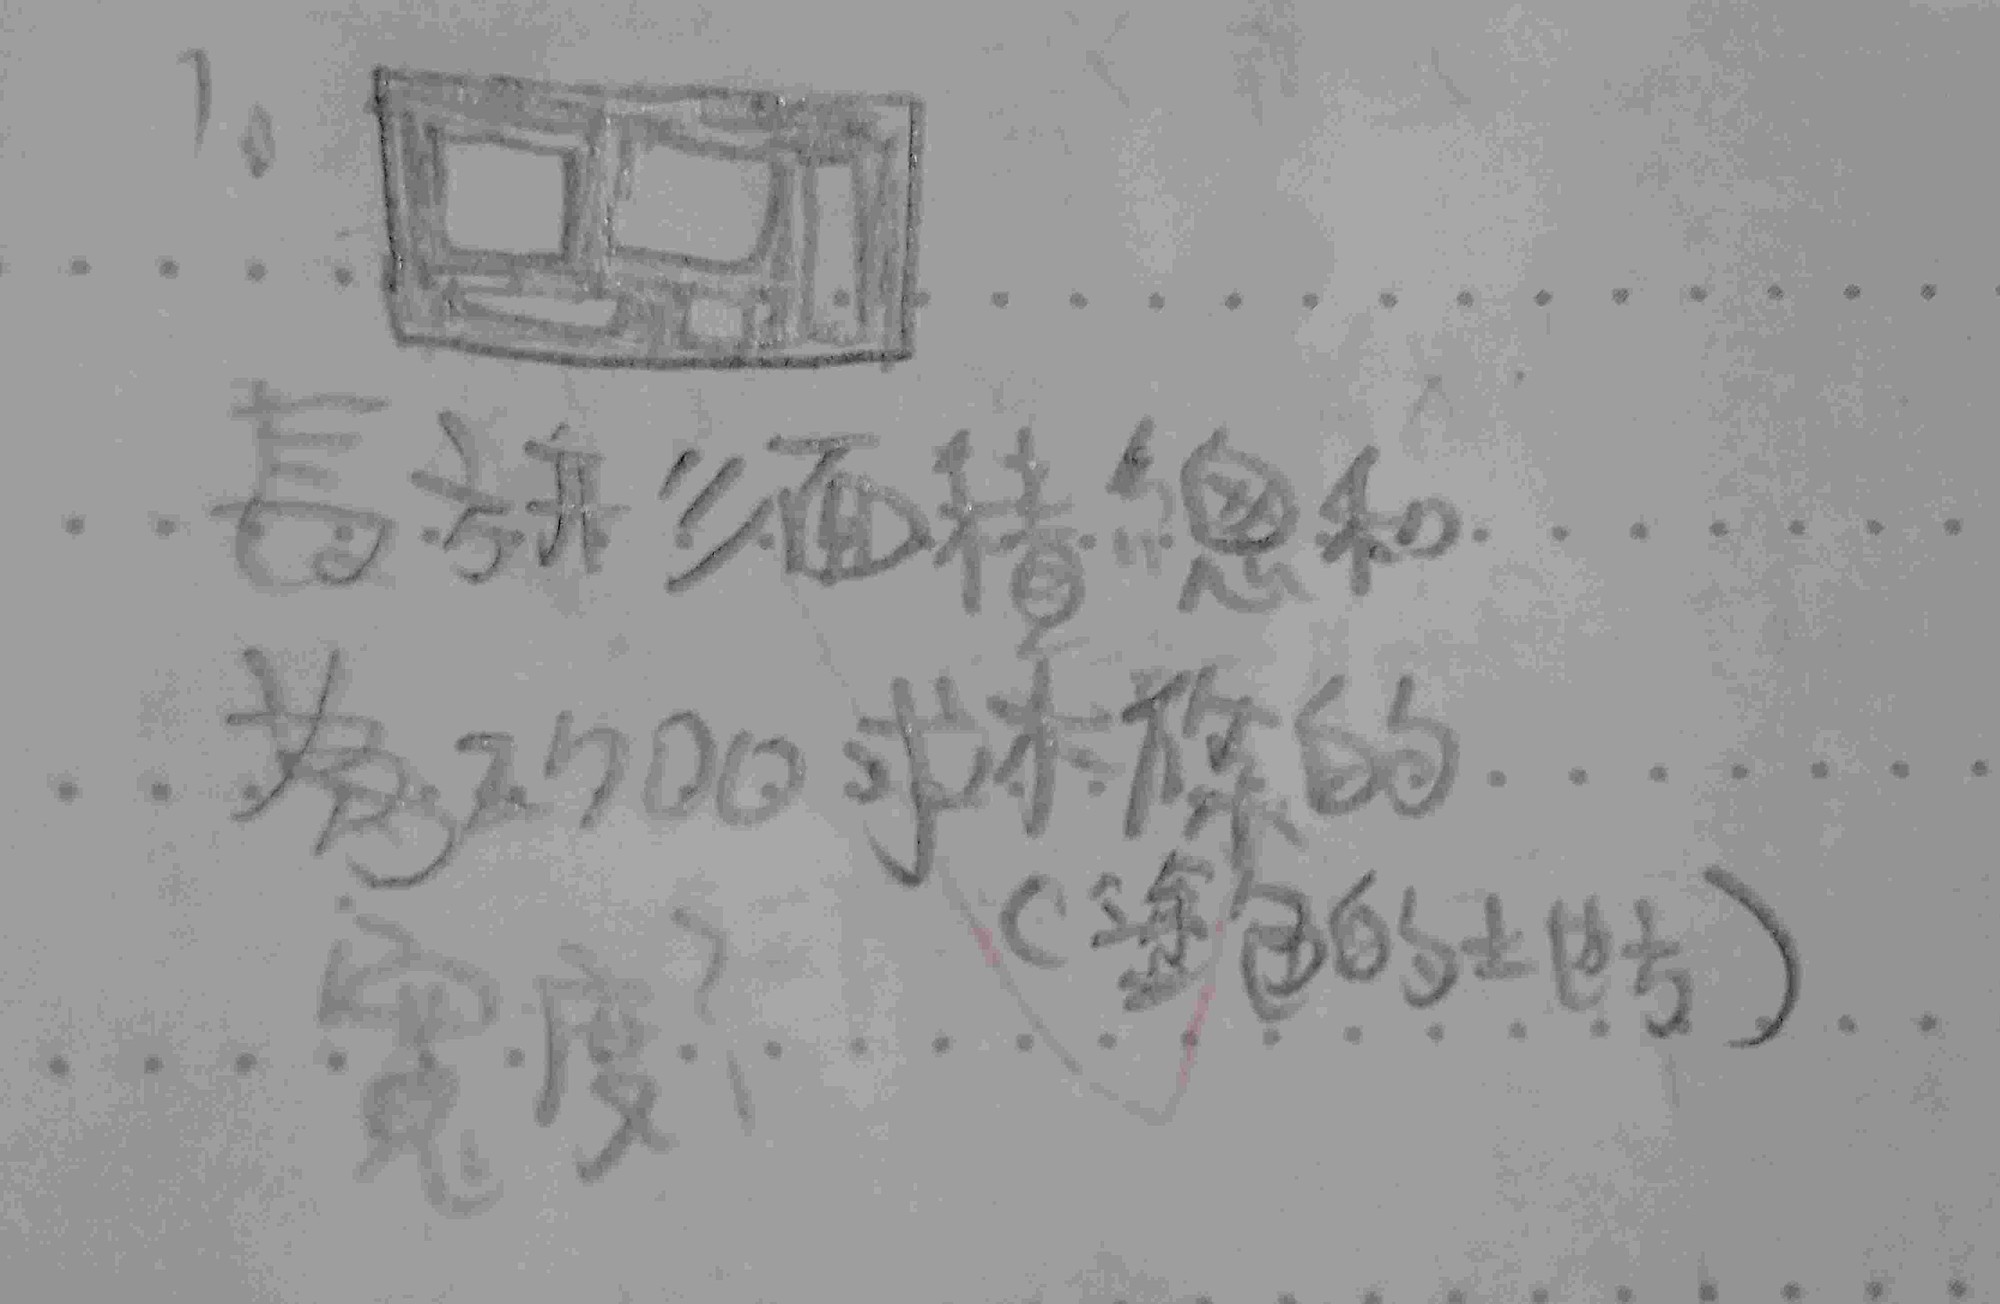 1。
長方形面積總和
為2700求木條的
(塗色的地方)
寬度?